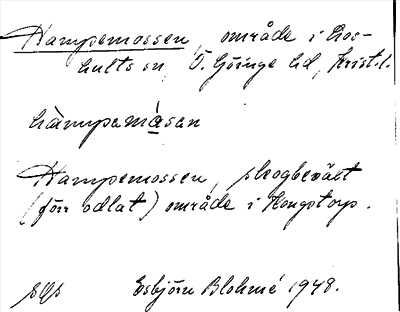 Hampemossen, område i Bos-
hults sn, Ö. Göinge hd, Krist.l.
hàmpemåsen
Hampemossen, skogbeväxt
(förr odlat) område i Kongstorp.
Esbjörn Blohmé 1948.